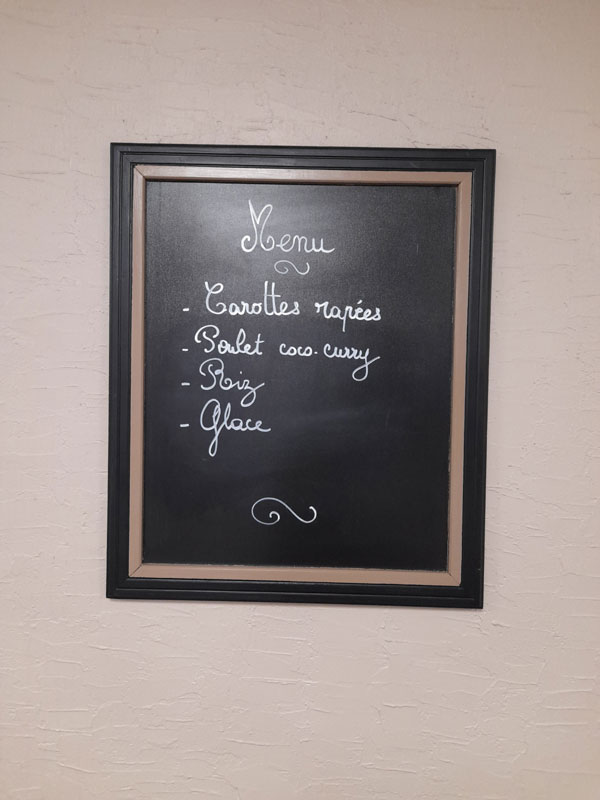 Menu
- Carottes rapées
- Poulet coco-curry
- Riz
- Glace